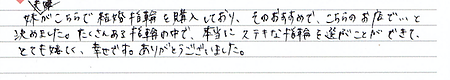 妹がこちらで結婚指輪を購入しており、そのおすすめで、こちらのお店で…と
決めました。たくさんある指輪の中で、本当にステキな指輪を選ぶことができて、
とても嬉しく、幸せですね。ありがとうございました。